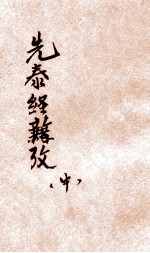 先秦经籍攷
(中)